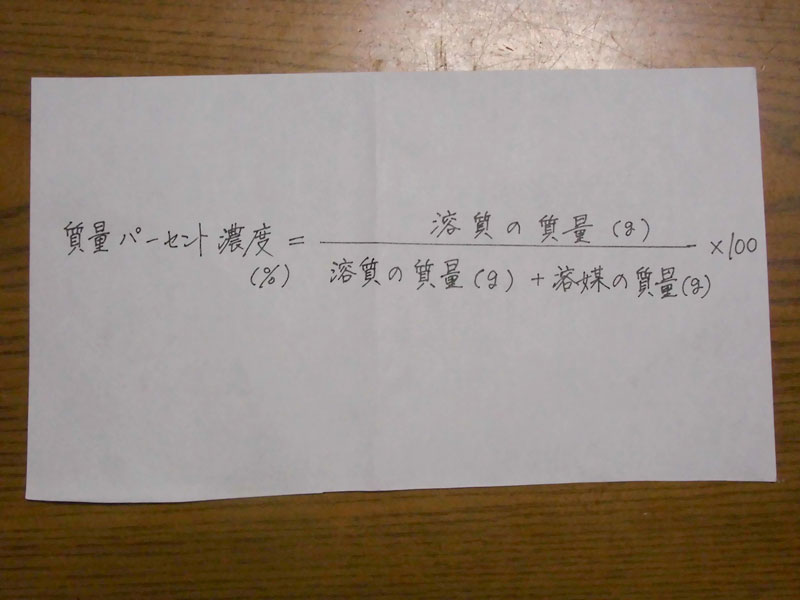 質量パーセント濃度(%) = 溶質の質量(g)
溶質の質量(g) + 溶媒の質量(g) ×100